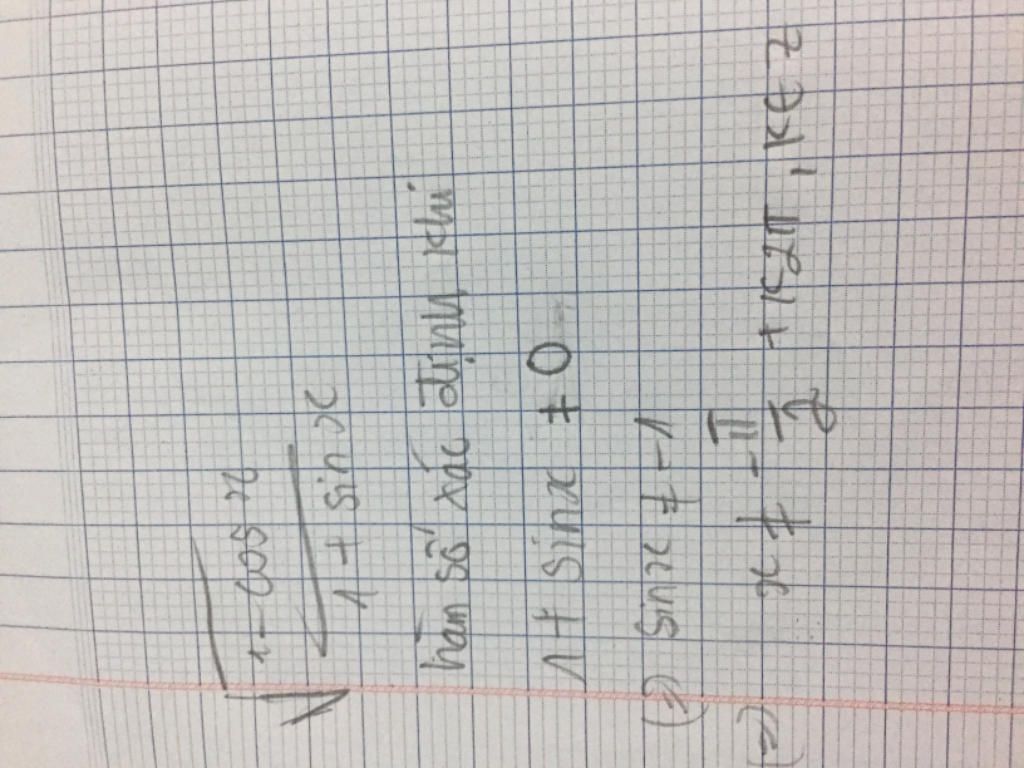 √(1 - cos x / 1 + sin x)
hàm số xác định khi
1 + sin x ≠ 0
(=) sin x ≠ -1
(=) x ≠ -π/2 + k2π, k ∈ Z